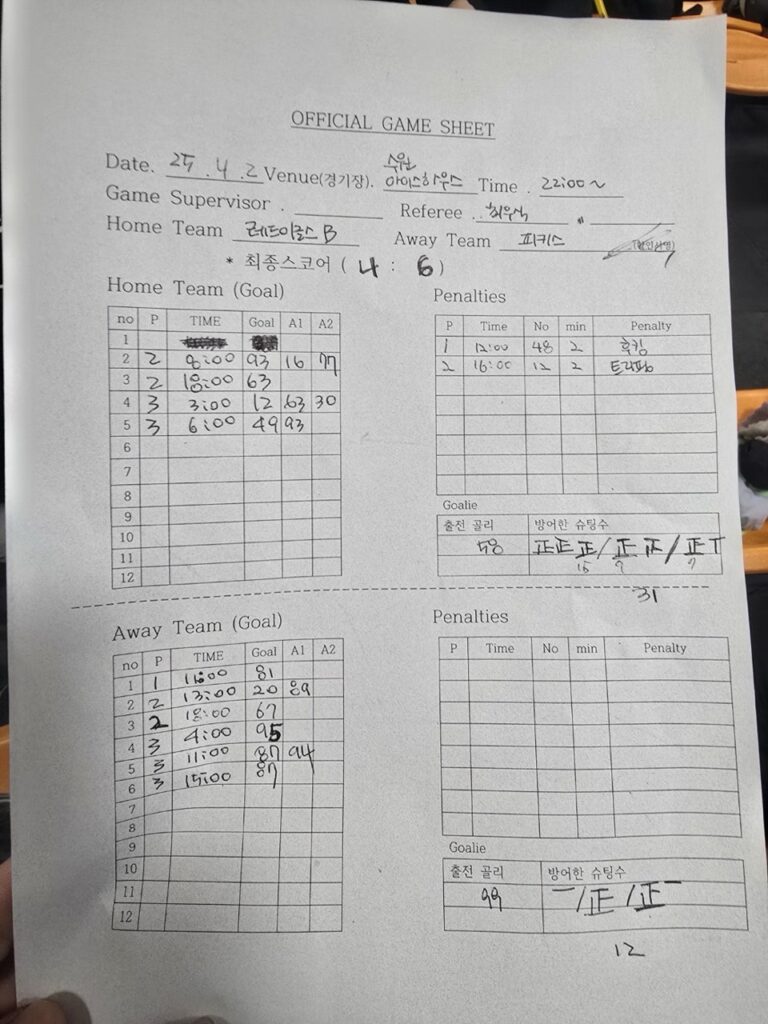 OFFICIAL GAME SHEET
Date. 25 . 4 . 2 Venue(경기장). 수원 아이스하우스 Time . 22:00~
Game Supervisor . Referee .
Home Team 레드이글스 B Away Team 피키스
* 최종스코어 ( 4 : 6 )
Home Team (Goal)
no P TIME Goal A1 A2
1
2 2 8:00 93 16 77
3 2 18:00 63
4 3 3:00 12 63 30
5 3 6:00 49 93
6
7
8
9
10
11
12
Penalties
P Time No min Penalty
1 12:00 48 2 후킹
2 16:00 12 2 트리핑
Goalie
출전 골리 방어한 슈팅수
58 正正正/正正/正T
15 9 7
31
Away Team (Goal)
no P TIME Goal A1 A2
1 1 11:00 81
2 2 13:00 20 89
3 2 18:00 67
4 3 4:00 95
5 3 11:00 87 94
6 3 15:00 87
7
8
9
10
11
12
Penalties
P Time No min Penalty
Goalie
출전 골리 방어한 슈팅수
99 一/正/正一
12